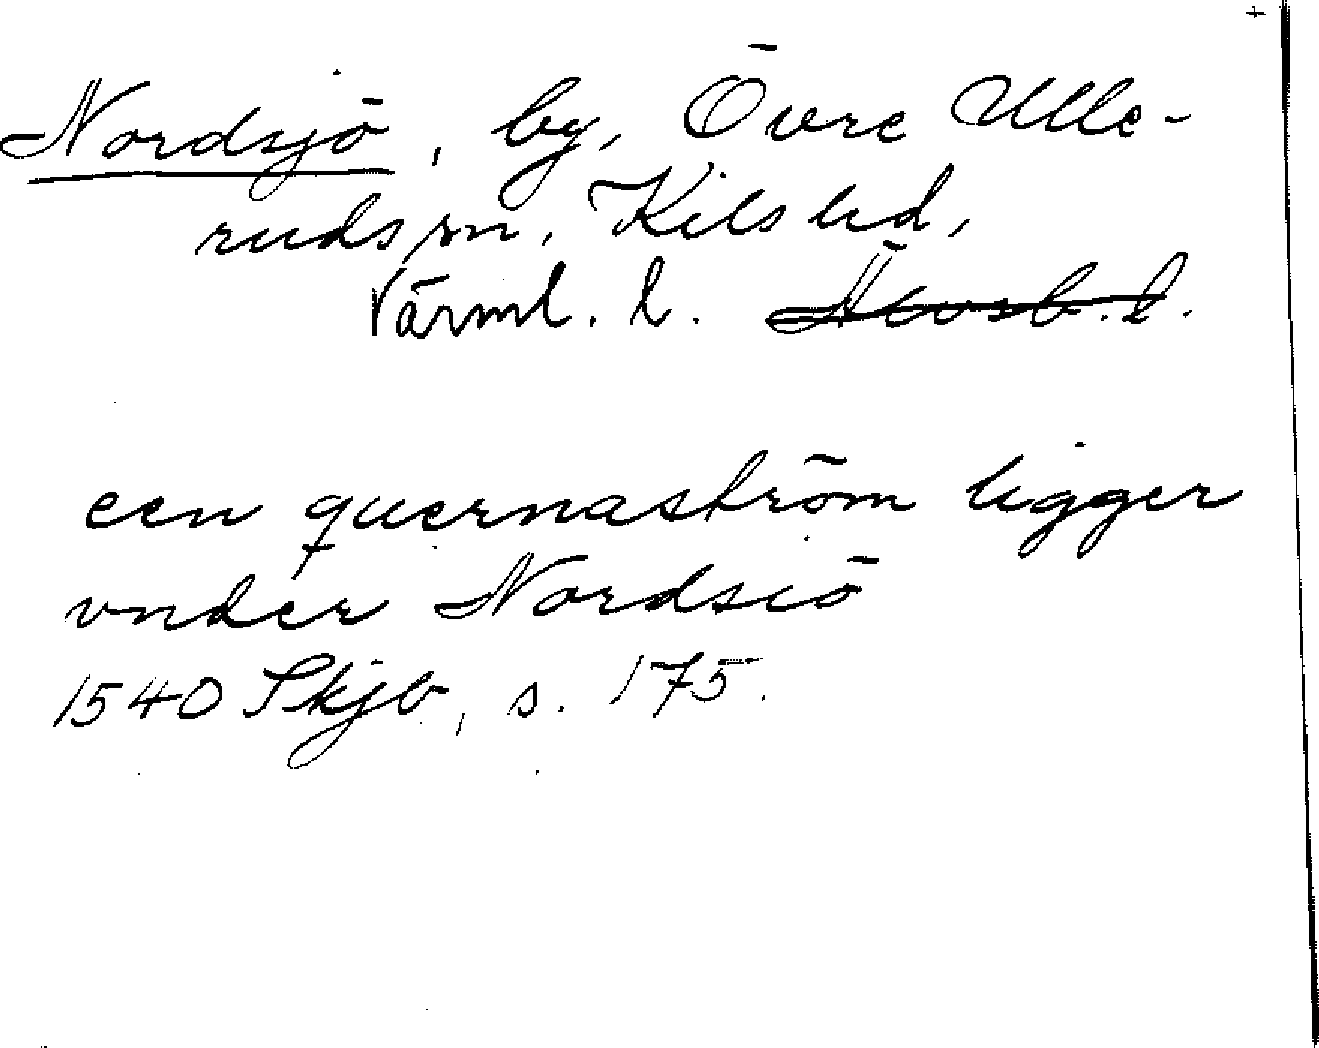 Nordsjö, by, Övre Ulle-
ruds sn, Kils hd,
Värml. l. Älvsb. l.
een quernaström ligger
vnder Nordsiö
1540 Skjb, s. 175.